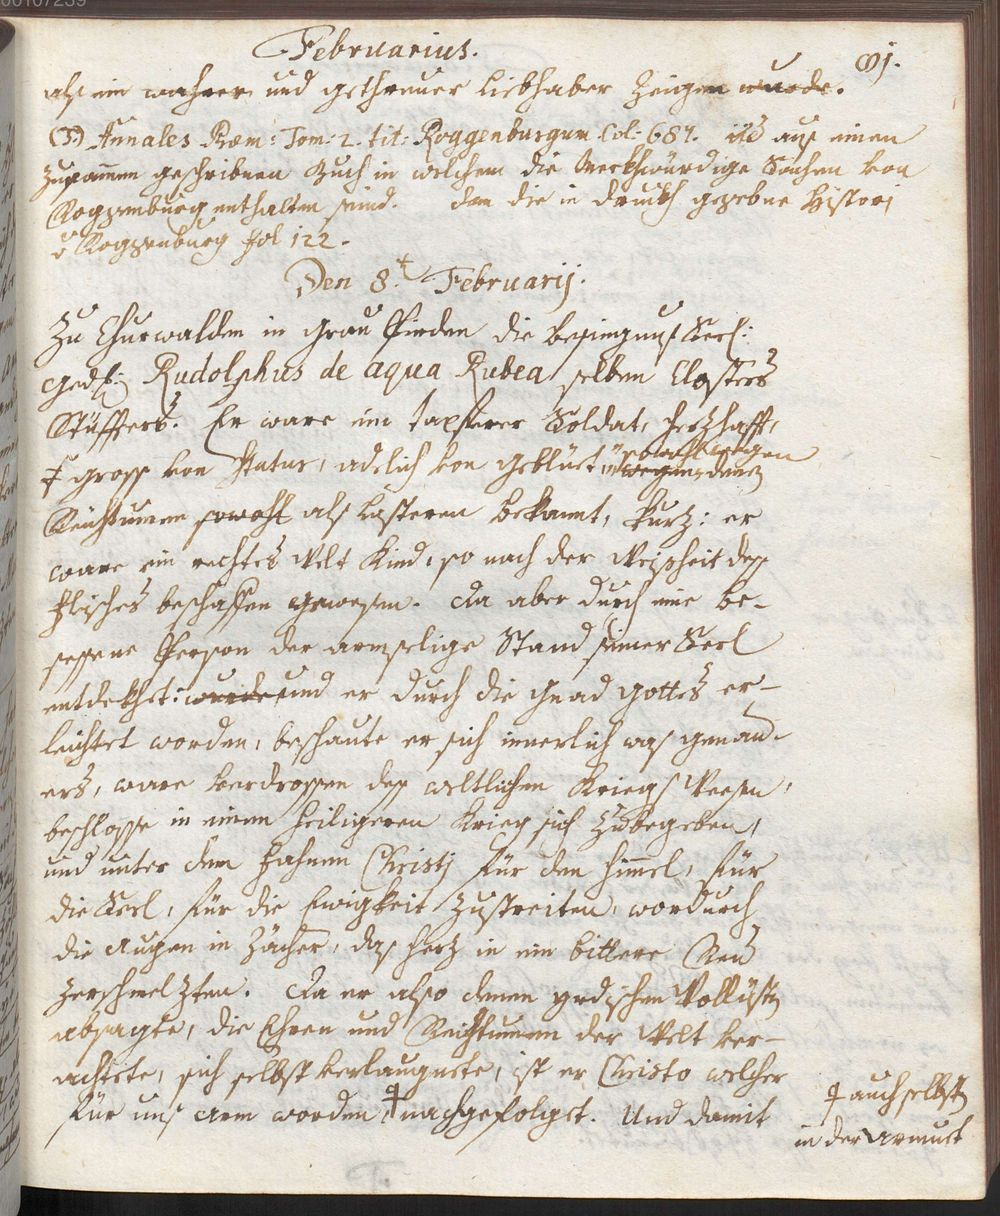 00107239
Februarius.
91.
als ein wahrer und getreuer Liebhaber Zeigen wurde.
(3) Annales Præm: Tom: 2. tit: Roggenburgum Col: 687. itẽ auß einen
Zusammen geschribnen Buch in welchem die Merkhwürdige Sachen von
Roggenburg enthalten seind. dan die in Druckh gegebne Histori
v Roggenburg fol 122.
Den 8.t Februarij.
Zu Churwalden in Grau Pündten die besingnuß Seel:
ged: Rudolphus de aqua Rubea selben Closters
Stüffters. Er ware ein tapferer Soldat, herzhafft,
gross von statur, adelich von geblüet, sowohl wegen
wegen denen
Reichtumen sowohl als Lasteren bekannt, kurz: er
ware ein rechtes Welt Kind, so nach der Weißheit deß
fleisches beschaffen gewesen. Da aber durch eine be-
sessene Person der armseelige Stand seiner Seel
entdekhet wurde, und er durch die gnad Gottes er-
leichtet worden, beschaute er sich innerlich was genau-
ers, ware verdrossen deß weltlichen Kriegs Weesen,
beschlosse in einen heiligeren Krieg sich Zubegeben,
und unter dem Fahnen Christi für den himmel, für
die Seel, für die Ewigkeit Zustreiten, wordurch
die augen in Zächer, das herz in ein bittere Reu
Zerschmelzten. Da er also denen yrdischen Wollüsten
absagte, die Ehren und Reichtumen der Welt ver-
achtete, sich selbst verlaugnete, ist er Christo welcher
für uns arm worden ‡ nachgefolget. Und damit
‡ auch selbsten
in der armuet